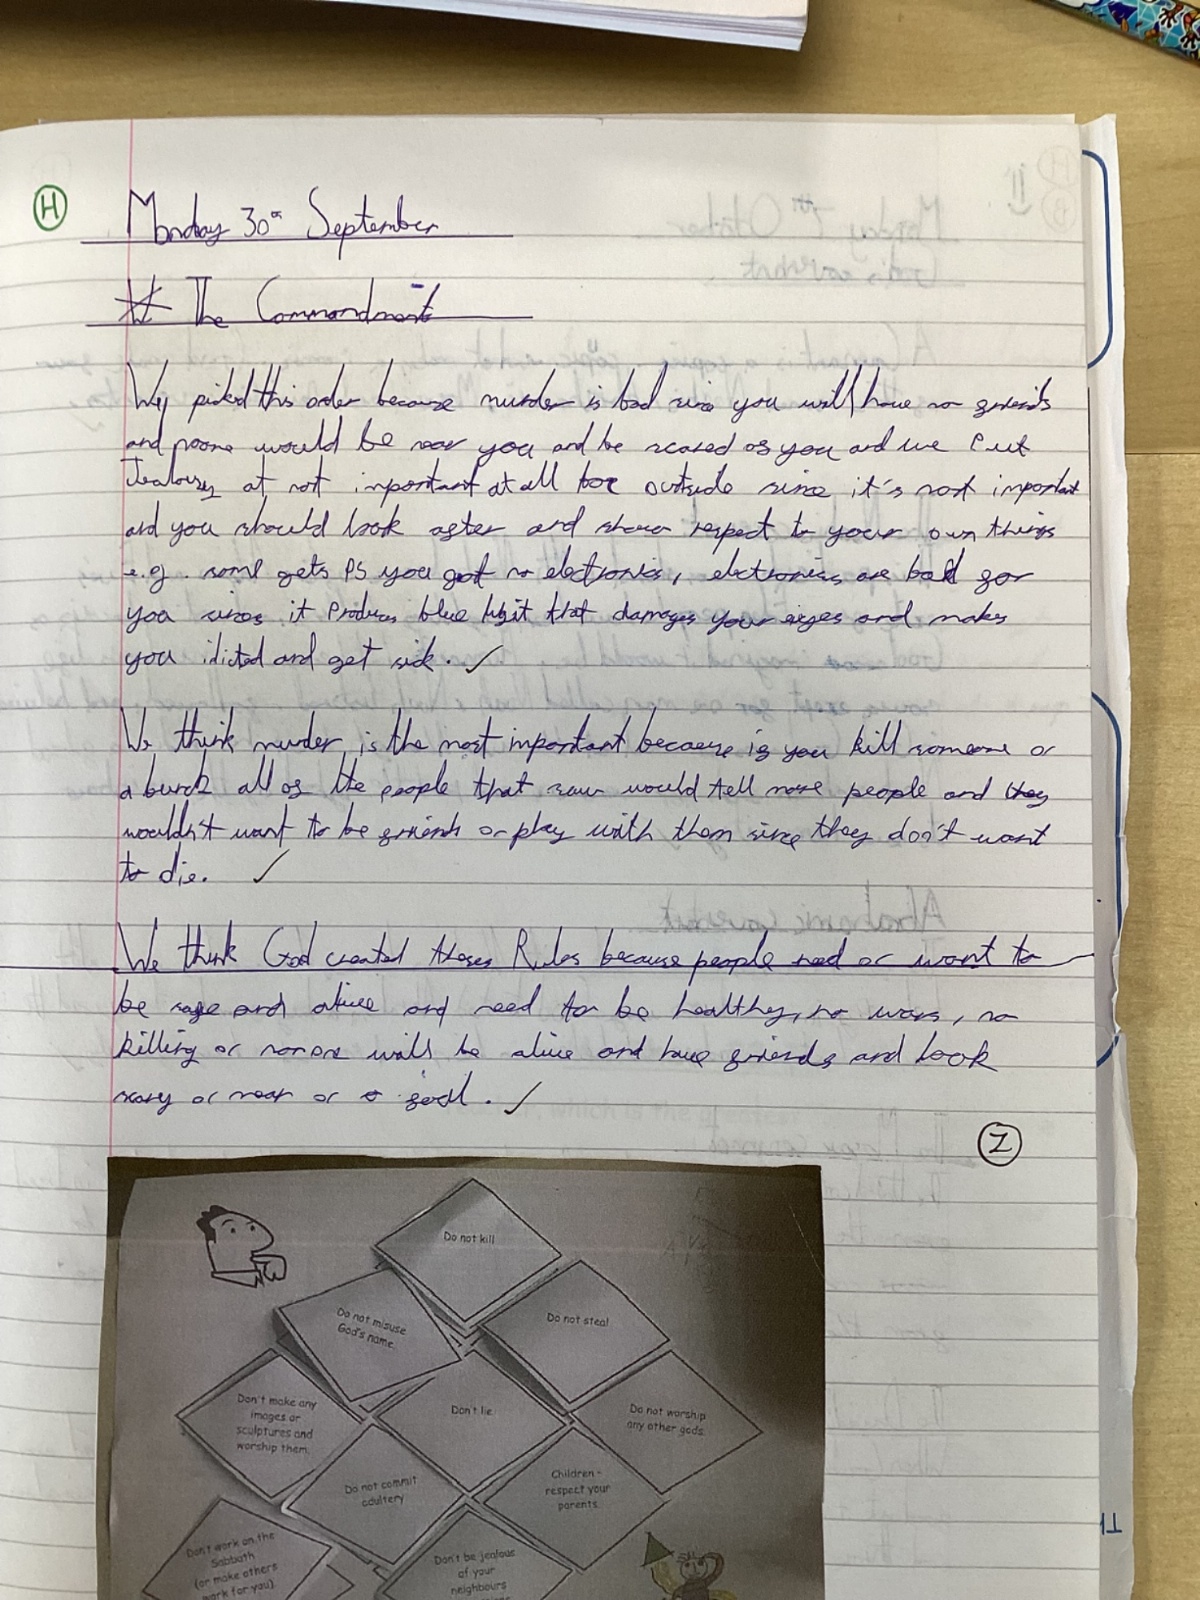 H
Monday 30th September
The Commandments
We picked this order because murder is bad since you will have no friends
and noone would be near you and be scared of you and we Put
Jealousy at not important at all outside since it's not important
and you should look after and show respect to your own things
e.g. some gets PS you got no electronics, electronics are bad for
you it Produces blue light that damages your eyes and makes
you idicted and get sick.
We think murder is the most important because if you kill someone or
a bunch all of the people that saw would tell more people and they
wouldn't want to be friends or play with them since they don't want
to die.
We think God created theses Rules because people need or want to
be safe and alive and need to be healthy, no wars, no
killing or will be alive and have friends and look
scary or mean or a
Z
Do not kill
Do not misuse
God's name.
Do not steal
Don't make any
images or
sculptures and
worship them.
Don't lie
Do not worship
any other gods.
Do not commit
adultery
Children -
respect your
parents.
Don't work on the
Sabbath
(or make others
work for you)
Don't be jealous
of your
neighbours